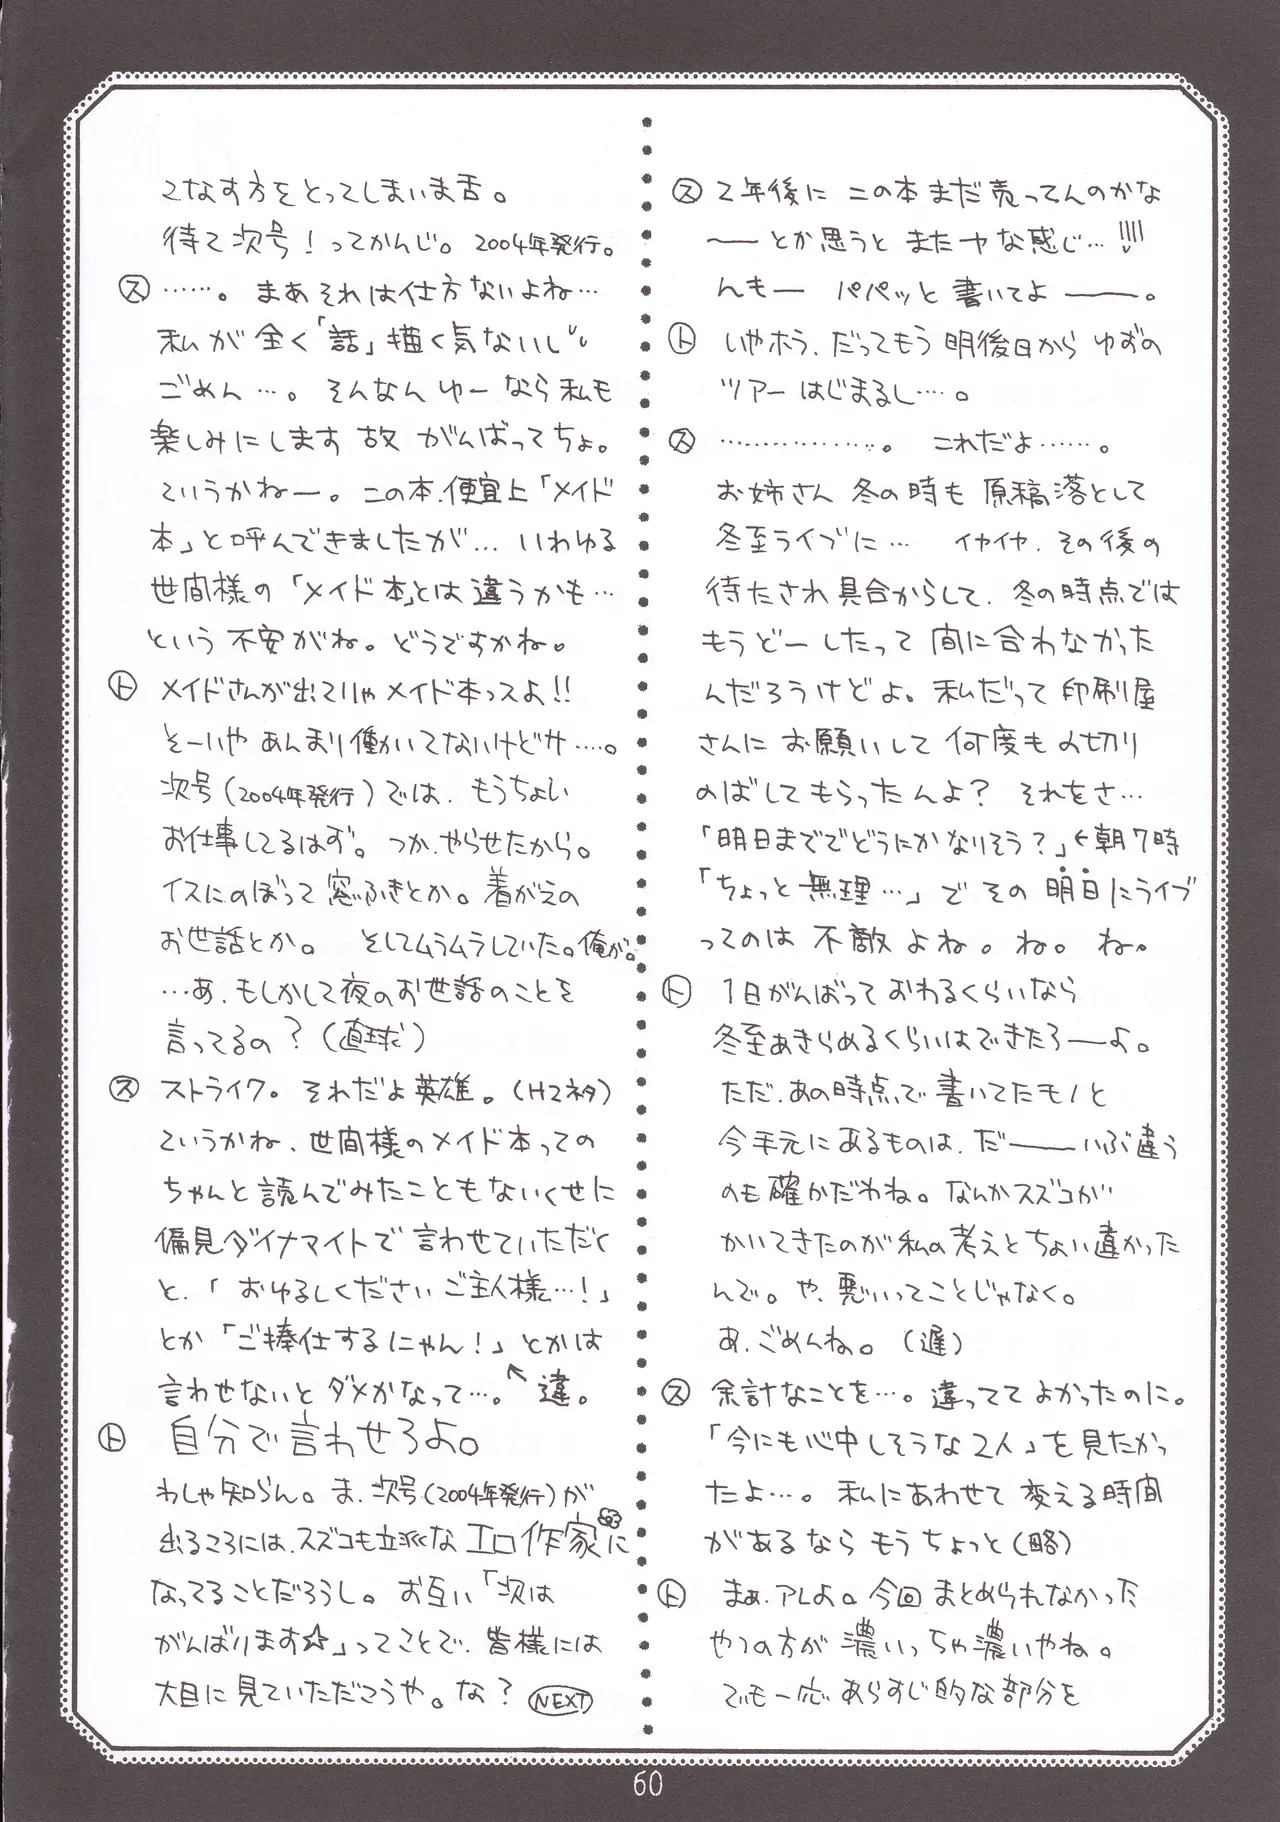 ス 2年後に この本まだ売ってんのかな
──とか思うと またヤな感じ…!!!!
んもー パパッと書いてよ───。
ト いやホラ、だってもう明後日から ゆずの
ツアーはじまるし…。
ス ……………。 これだよ……。
お姉さん 冬の時も 原稿落として
冬至ライブに… イヤイヤ、その後の
待たされ具合からして、冬の時点では
もうどーしたって 間に合わなかった
んだろうけどよ。私だって 印刷屋
さんに お願いして 何度も〆切り
のばしてもらったんよ? それをさ…
「明日まででどうにかなりそう?」←朝7時
「ちょっと無理…」で その 明日にライブ
ってのは 不敵 よね。ね。ね。
ト 1日がんばって おわるくらいなら
冬至あきらめるくらいはできたろーよ。
ただ、あの時点で 書いてたモノと
今手元にあるものは、だ───いぶ違う
のも確かだわね。なんかスズコが
かいてきたのが私の考えとちょい違かった
んで。や、悪いってことじゃなく。
あ、ごめんね。(遅)
ス 余計なことを…。違っててよかったのに。
「今にも心中しそうな2人」を見たかっ
たよ…。私にあわせて 変える時間
があるなら もうちょっと(略)
ト まぁ、アレよ。今回 まとめられなかった
やつの方が 濃いっちゃ濃いやね。
でも一応 あらすじ的な部分を
こなす方をとってしまいま舌。
待て次号!ってかんじ。2004年発行。
ス ……。まあそれは仕方ないよね…
私が 全く「話」描く気ないし
ごめん…。そんなん ゆーなら私も
楽しみにします 故 がんばってちょ。
ていうかねー。この本、便宜上「メイド
本」と呼んできましたが… いわゆる
世間様の「メイド本」とは 違うかも…
という 不安がね。どうですかね。
ト メイドさんが出てりゃメイド本っスよ!!
そーいや あんまり働いてないけどサ……。
次号(2004年発行)では、もうちょい
お仕事してるはず。つか、やらせたから。
イスにのぼって窓ふきとか。着がえの
お世話とか。 そしてムラムラしていた。俺が。
…あ、もしかして夜のお世話のことを
言ってるの?(直球)
ス ストライク。それだよ英雄。(Hマネタ)
ていうかね、世間様のメイド本っての
ちゃんと読んでみたこともないくせに
偏見ダイナマイトで 言わせていただく
と、「おゆるしくださいご主人様…!」
とか「ご捧仕するにゃん!」とかは
言わせないとダメかなって…。↖違。
ト 自分で言わせろよ。
わしゃ知らん。ま、次号(2004年発行)が
出るころには、スズコも立派なエロ作家に
なってることだろうし。お互い「次は
がんばります☆」ってことで、皆様には
大目に見ていただこうや。な? NEXT
60